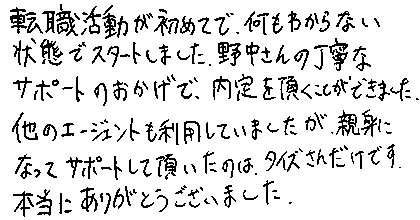 転職活動が初めてで、何もわからない
状態でスタートしました。野中さんの丁寧な
サポートのおかげで、内定を頂くことができました。
他のエージェントも利用していましたが、親身に
なってサポートして頂いたのは、タイズさんだけです。
本当にありがとうございました。